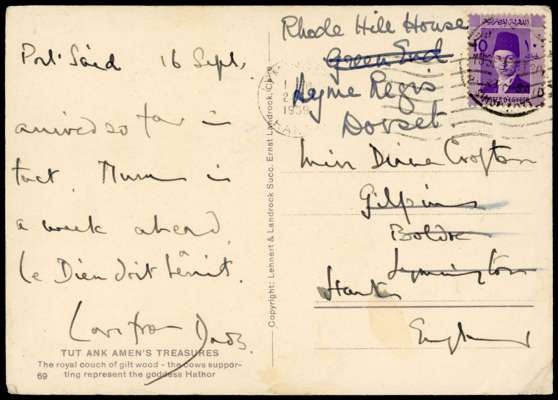 Port Said 16 Sept.
arrived so far in
tact. Mum is
a week ahead.
le Dieu doit bênit.
Love from Dads.
TUT ANK AMEN'S TREASURES
The royal couch of gilt wood - the cows suppor-
ting represent the goddess Hathor
69
Copyright: Lehnert & Landrock Succ. Ernst Landrock, Cairo
Rhode Hill House
Green End
Lyme Regis
Dorset.
Miss Diana Crofton
Gilpins
Boldre
Lymington
Hants
England
15